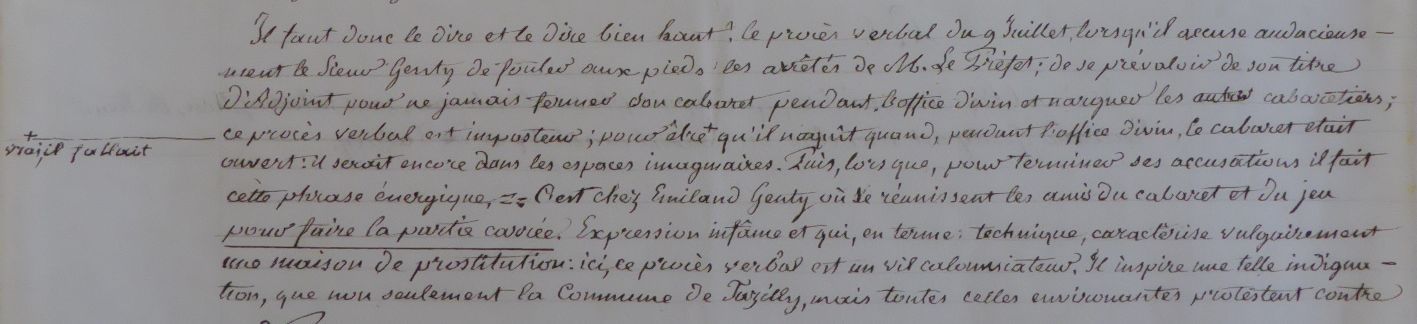 Il faut donc le dire et le dire bien haut: le procès verbal du 9 Juillet, lorsqu'il accuse audacieuse-
ment le Sieur Genty de fouler aux pieds les arrêtés de M. Le Préfet; de se prévaloir de son titre
d'Adjoint pour ne jamais fermer son cabaret pendant l'office divin et narguer les autres cabaretiers;
ce procès verbal est imposteur; pour être + qu'il naquit quand, pendant l'office divin, le cabaret était
+ vrai, il fallait
ouvert: il serait encore dans les espaces imaginaires. Puis, lorsque, pour terminer ses accusations il fait
cette phrase énergique, = C'est chez Emiland Genty où se réunissent les amis du cabaret et du jeu
pour faire la partie carrée. Expression infâme et qui, en terme: technique, caractérise vulgairement
une maison de prostitution: ici, ce procès verbal est un vil calomniateur. Il inspire une telle indigna-
tion, que non seulement la Commune de Tazilly, mais toutes celles environantes protestent contre